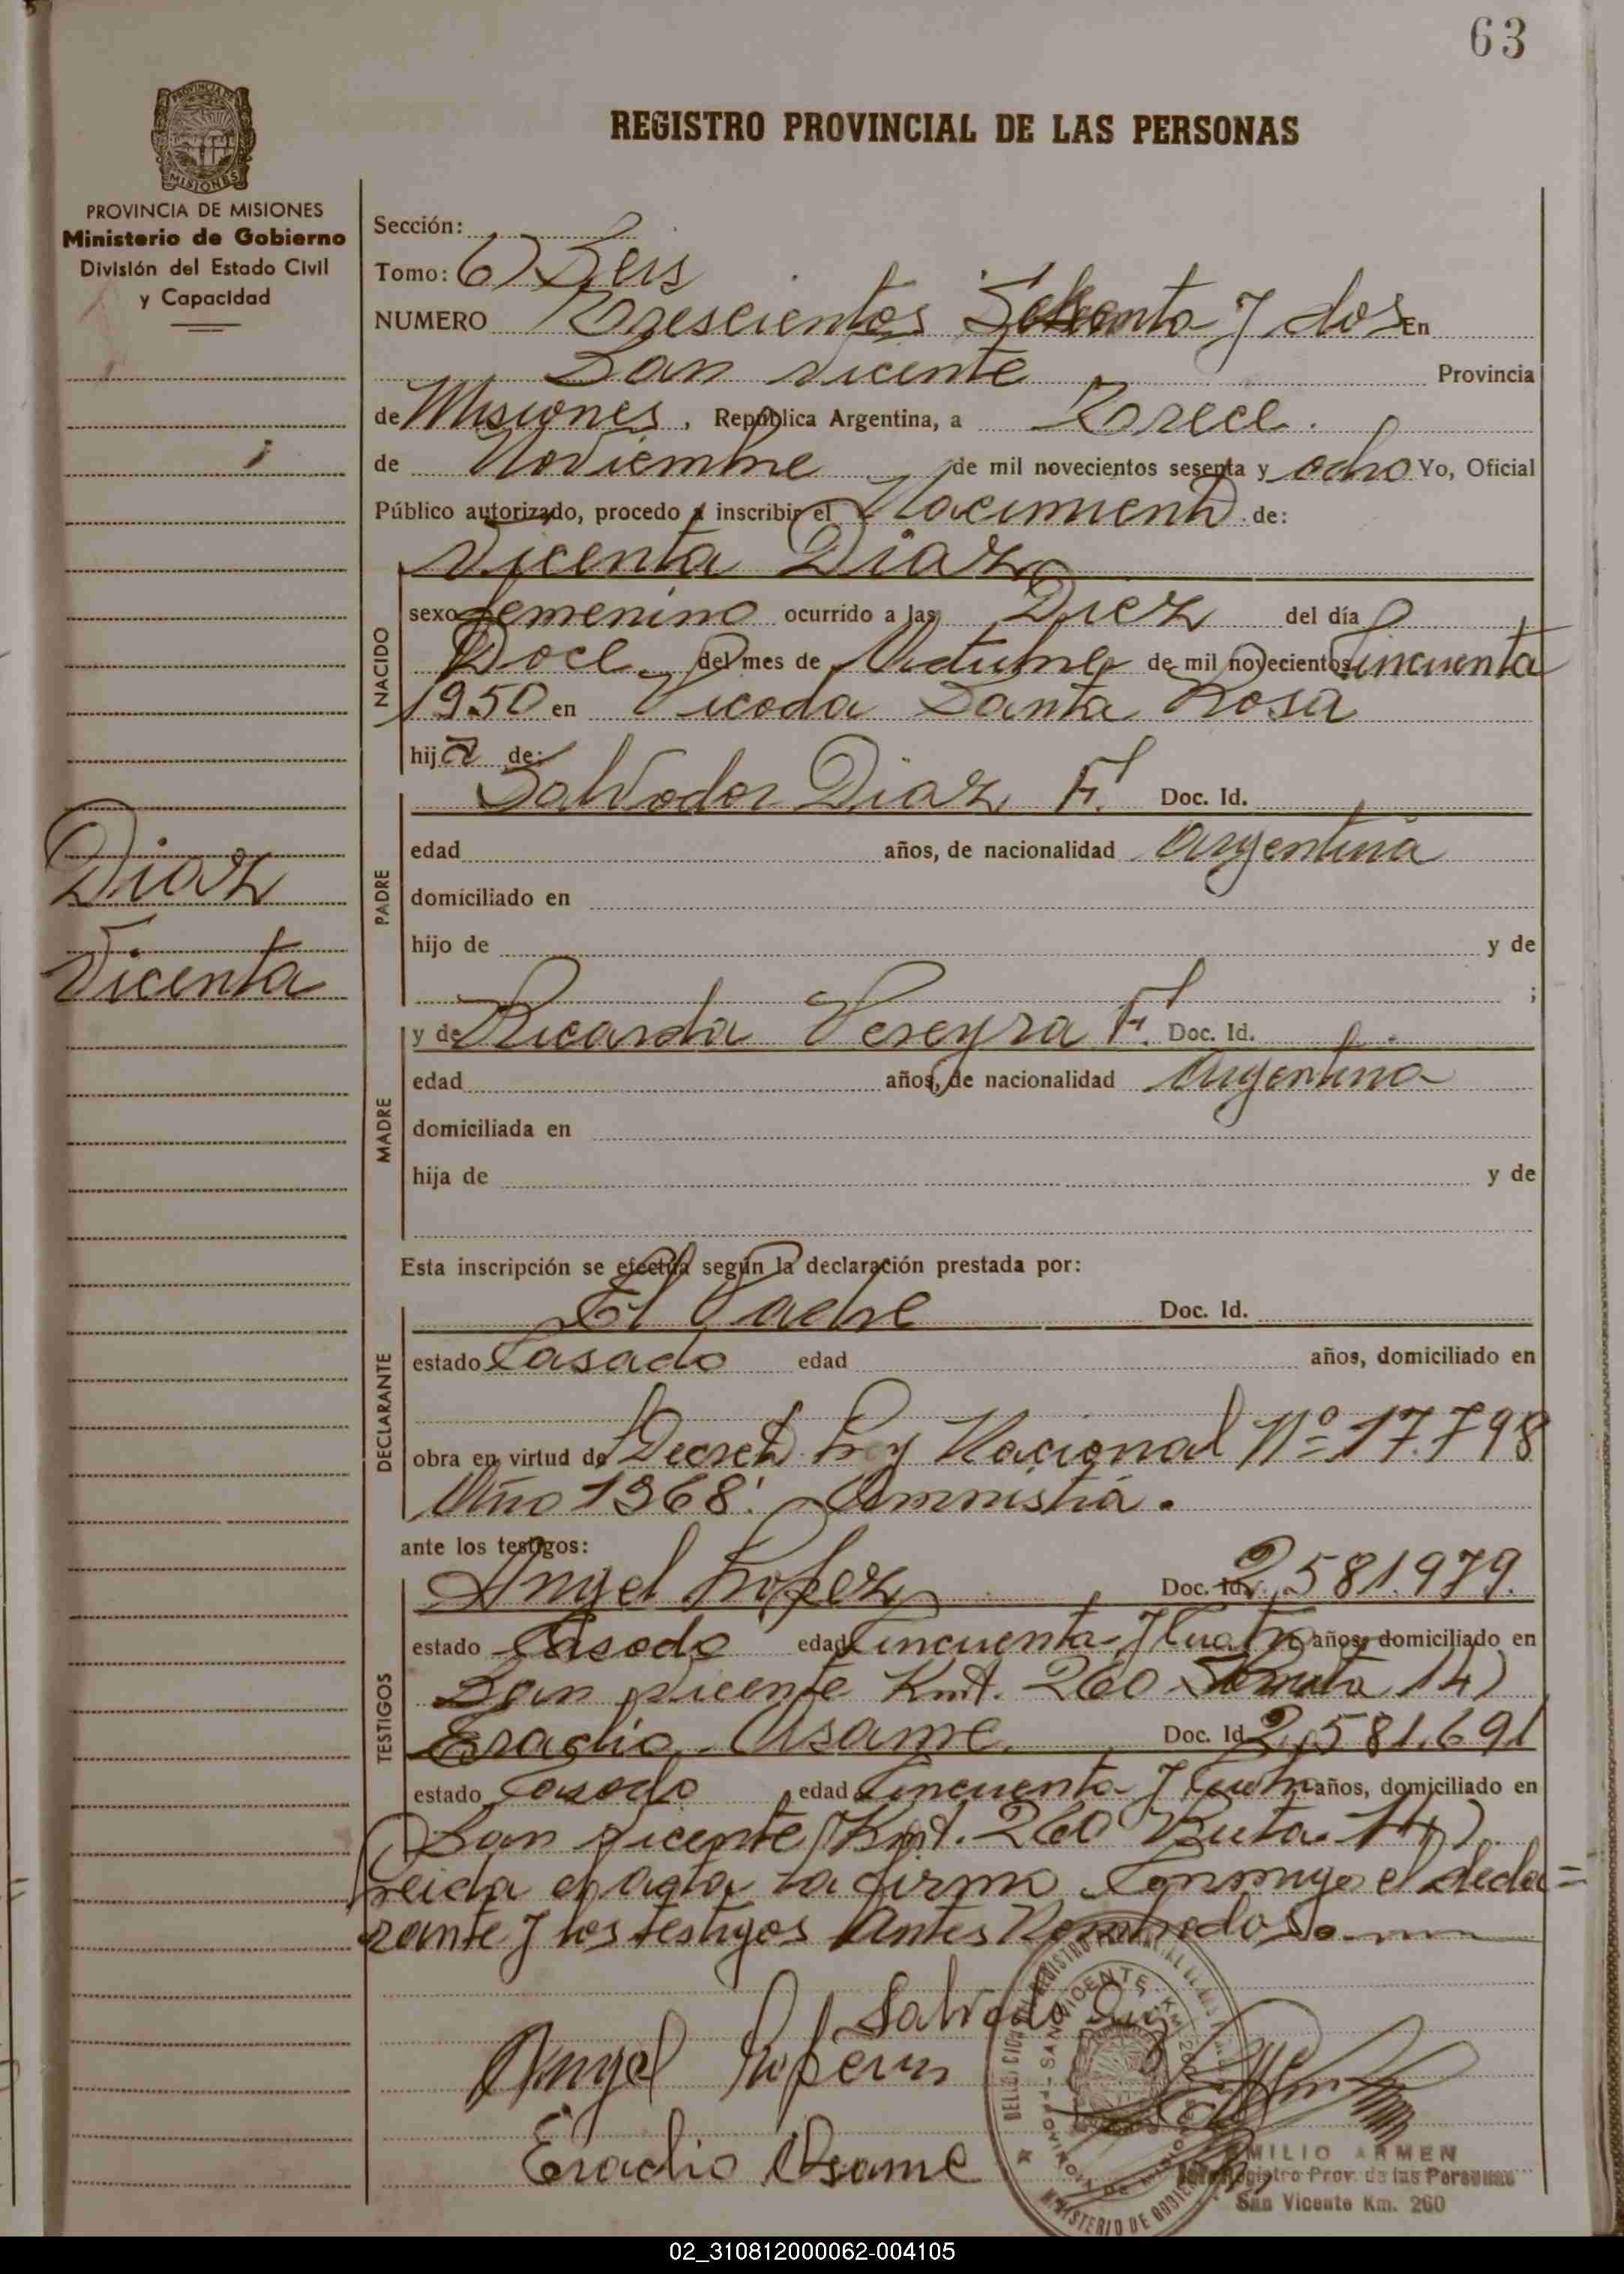 63
PROVINCIA DE MISIONES
MISIONES
PROVINCIA DE MISIONES
Ministerio de Gobierno
División del Estado Civil
y Capacidad
REGISTRO PROVINCIAL DE LAS PERSONAS
Sección:
Tomo: 6) Seis
NUMERO Trescientos y dos En
San Vicente Provincia
de Misiones, República Argentina, a Trece
de Noviembre de mil novecientos sesenta y ocho Yo, Oficial
Público autorizado, procedo a inscribir el Nacimiento de:
Vicenta Diaz
NACIDO
sexo femenino ocurrido a las Diez del día
Doce del mes de Octubre de mil novecientos Cincuenta
1950 en Picada Santa Rosa
hija de:
Salvador Diaz F. Doc. Id.
PADRE
edad años, de nacionalidad Argentina
domiciliado en
hijo de y de
;
Diaz
Vicenta
y de Ricarda Pereyra F. Doc. Id.
MADRE
edad años, de nacionalidad Argentina
domiciliada en
hija de y de
Esta inscripción se efectúa según la declaración prestada por:
El Padre Doc. Id.
DECLARANTE
estado Casado edad años, domiciliado en
obra en virtud de Decreto Ley Nacional Nº 17.798
Año 1968. Amnistia.
ante los testigos:
TESTIGOS
Angel Lopez Doc. Id. 2.581.979.
estado Casado edad Cincuenta y Cuatro años, domiciliado en
San Vicente Kmt. 260 Ruta 14)
Eraclio Asame Doc. Id. 2.581.691
estado Casado edad Cincuenta y años, domiciliado en
San Vicente (Kmt. 260 Ruta 14).
Leida el acta la firma Conmigo el decla=
rante y los testigos Antes Nombrados.
Salvado
Angel
Eraclio Asame
SAN VICENTE - KM. 260
MINISTERIO DE GOBIERNO
EMILIO ARMEN
Registro Prov. de las Personas
San Vicente Km. 260
02_310812000062-004105